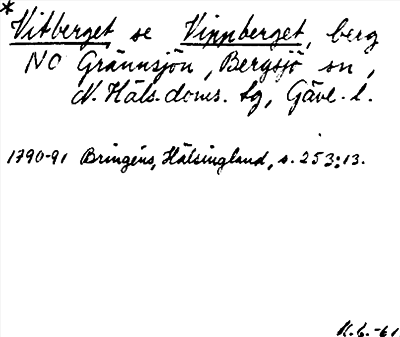 * Vitberget se Vippberget, berg
NO Grännsjön, Bergsjö sn,
N. Häls. doms. tg, Gävl. l.
1790-91 Bringéus, Hälsingland, s. 253:13.
N.G. -61